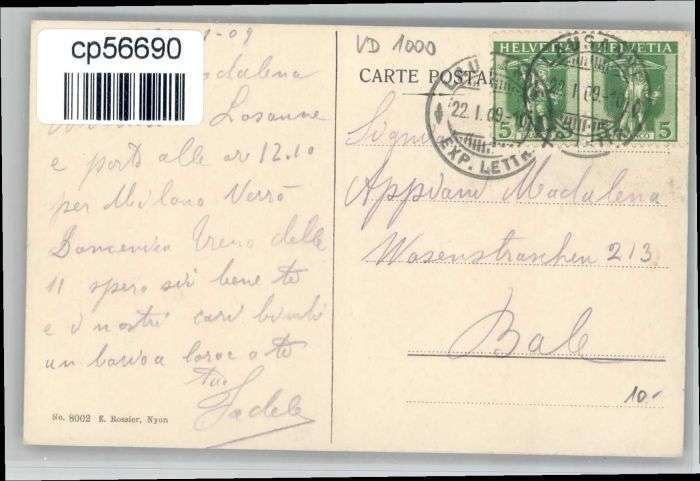 cp56690
VD 1000
-09
CARTE POSTA
HELVETIA
HELVETIA
5
5
LAUSANNE
22.I.09-10
EXP. LETTR.
22.I.09.-10
Losanne
e parto alle ore 12.10
per Milano Verrò
Domenica treno delle
11 spero sii bene te
e i nostri cari bimbi
un bacio a te
tuo
Fedele
Appiani Madalena
Wasenstraschen 213
Bale
10.-
No. 8002 E. Rossier, Nyon